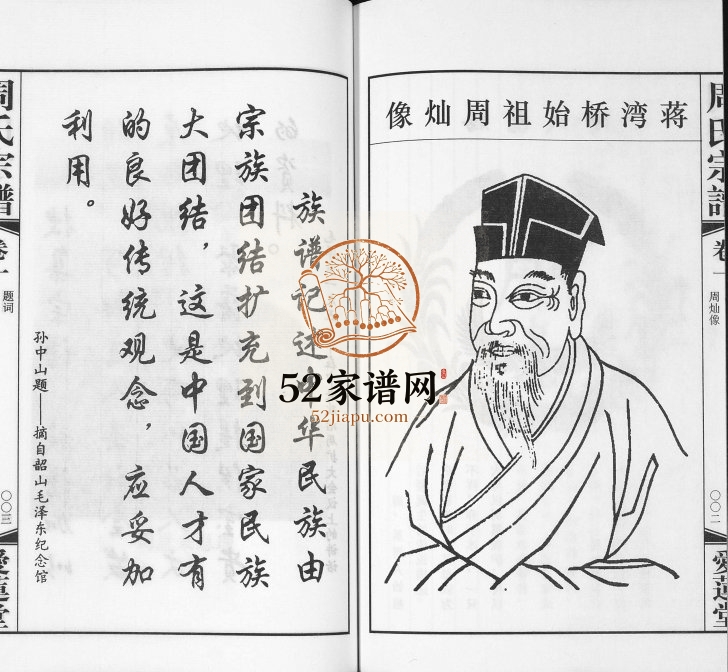 蒋湾桥始祖周灿像
周氏宗譜
卷一
周灿像
〇〇二
愛蓮堂
族谱记述中华民族由
宗族团结扩充到国家民族
大团结，这是中国人才有
的良好传统观念，应妥加
利用。
孙中山题——摘自韶山毛泽东纪念馆
周氏宗譜
卷一
题词
〇〇三
愛蓮堂
52家谱网
52jiapu.com